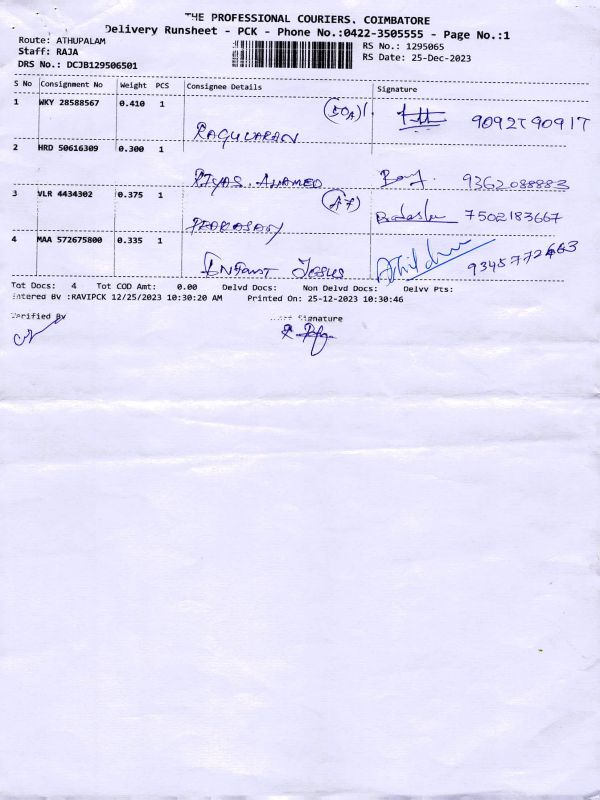 THE PROFESSIONAL COURIERS, COIMBATORE
Delivery Runsheet - PCK - Phone No.:0422-3505555 - Page No.:1
Route: ATHUPALAM
RS No.: 1295065
Staff: RAJA
RS Date: 25-Dec-2023
DRS No.: DCJB129506501
S No Consignment No Weight PCS Consignee Details Signature
1 WKY 28588567 0.410 1
(50A)
RAGULARAN 9092790917
2 HRD 50616309 0.300 1
RIYAS. AHAMED 9362088883
3 VLR 4434302 0.375 1
(A7)
7502183667
4 MAA 572675800 0.335 1
INFANT JESUS 9345772463
Tot Docs: 4 Tot COD Amt: 0.00 Delvd Docs: Non Delvd Docs: Delvv Pts:
Entered By :RAVIPCK 12/25/2023 10:30:20 AM Printed On: 25-12-2023 10:30:46
Verified By Signature